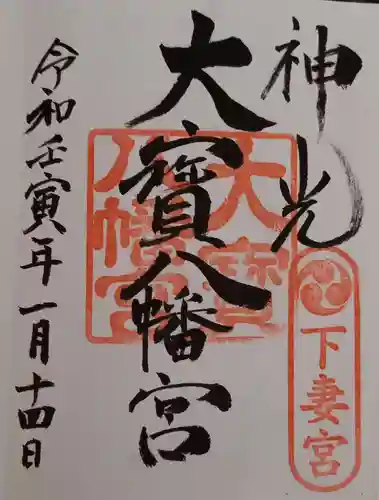 神光
下妻宮
大寳八幡宮
大寳八幡宮
令和壬寅年一月十四日